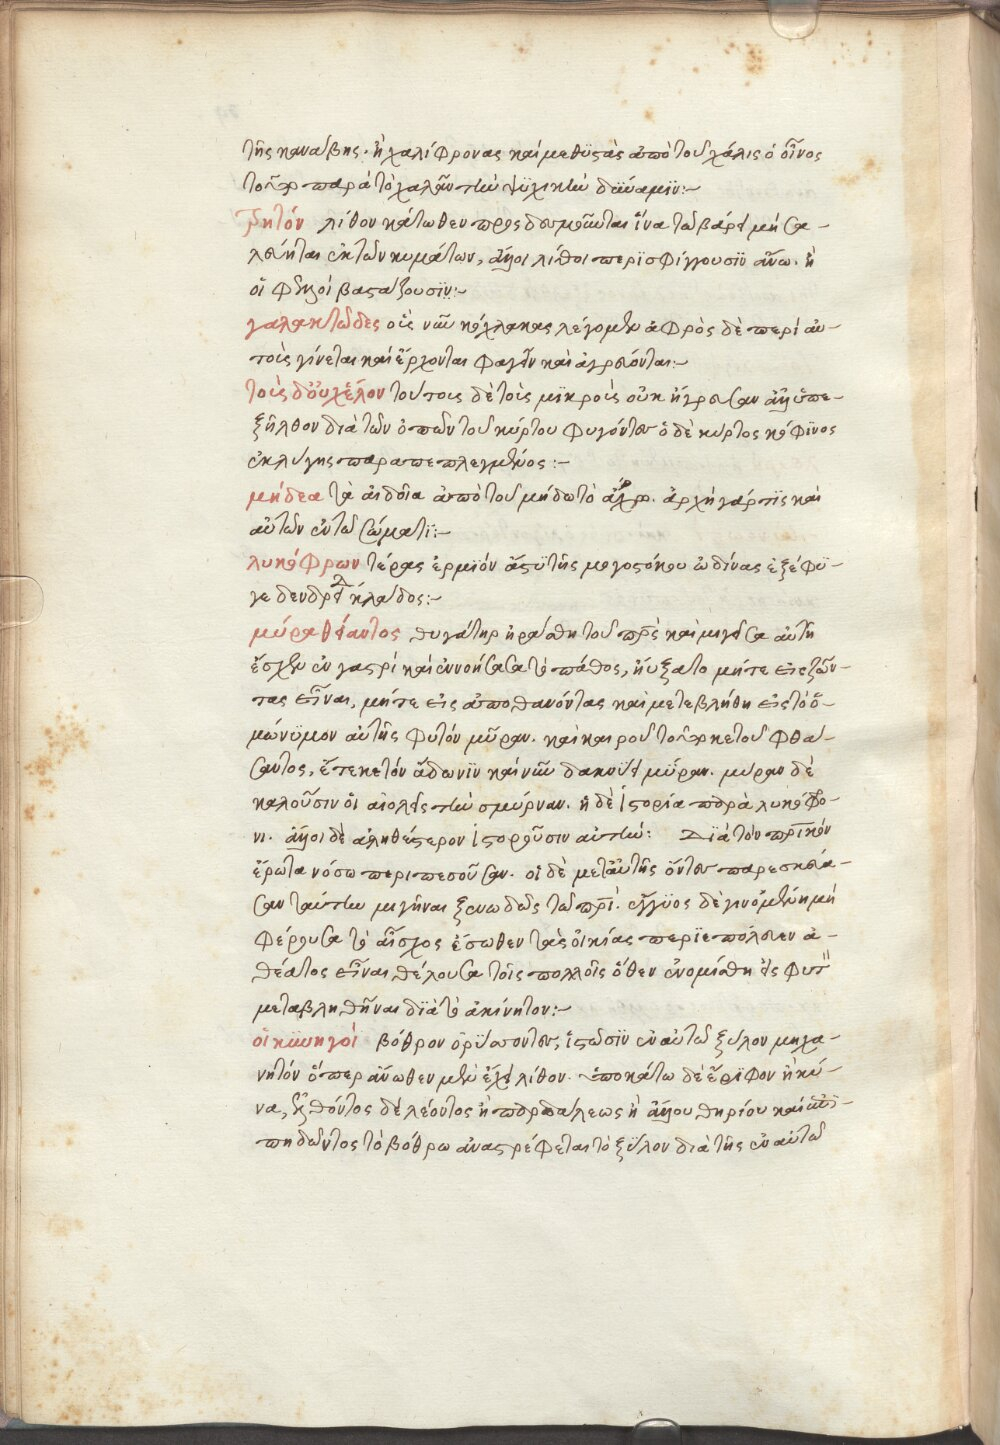 τῆς κανάβης. ἢ χαλίφρονας καὶ μεθϋςὰς ἀπὸ τοῦ χάλις ὁ οἶνος
παρὰ τὸ χαλᾶν τὴν ψϋχικὴν δϋναμϊν:~
τρητόν λίθον κάτωθεν προςδεσμοῦνται ἵνα τῶ βάρει μὴ σα-
λεύηται ἐκ τῶν κυμάτων, ἄλλοι λίθοι περϊσφίγγουσϊν ἄνω. ἢ
οἵ φελλοί βαςάζουσϊν:~
γαλακτώδες οἷς νῦν κόχλακας λέγομεν ἀφρὸς δὲ περὶ αὐ-
τοῖς γίνεται καὶ ἔρχονται φαγεῖν καὶ ἀγρεύονται:~
τοῖς δ' οὐχ ἑῖλον τούτοις δὲ τοῖς μϊκροῖς οὐκ ἤγρευσαν ἀλλ' ὑπε-
ξῆλθον διὰ τῶν ὀπῶν τοῦ κύρτου φυγόντες ὁ δὲ κύρτος κόφϊνος
ἐκ λύγης παραπεπλεγμένος:~
μήδεα τὰ αἰδοῖα ἀπὸ τοῦ μήδω τὸ ἄρχω. ἀρχὴ γάρ τϊς καὶ
αὐτῶν ἐν τῶ σώματϊ:~
λυκόφρων τέρας ἑρμϊόν ἄςυ τῆς μογοςόκου ὠδίνας ἐξέφϋ-
γε κλάδος:~
μύρα θείαντος θυγάτηρ ἠράσθη τοῦ πρς καὶ μιγεῖσα αὐτῆ
ἔσχεν ἐν γαςρί καὶ ἐννοήσασα τὸ πάθος, ηὔξατο μήτε εἰς ζῶν-
τας εἶναι, μήτε εἰς ἀποθανόντας καὶ μετεβλήθη εἰς τὸ ὁ-
μώνϋμον αὐτῆς φυτόν μῦραν. καὶ καιροῦ τοῦ φθά-
σαντος, ἔτεκε τόν ἄδωνϊν καὶ νῦν δακρύει μύραν. μύραν δὲ
καλοῦσιν οἱ αἰολεῖς τὴν σμύρναν. ἡ δὲ ἱςορία παρὰ λυκόφρο-
νι. ἄλλοι δὲ ἀληθέςερον ἱςοροῦσιν αὐτήν: Δϊὰ τὸν πρϊκόν
ἔρωτα νόσω περιπεσοῦσαν. οἱ δὲ μετ' αὐτῆς ὄντες παρεσκεύα-
σαν ταύτην μιγῆναι ξενωδῶς τῶ πρί. ἔγγϋος δὲ γινομένη μὴ
φέρουσα τὸ αἶσχος ἔσωθεν τὰς οἰκίας περϊεπόλευεν ἀ-
θέατος εἶναι θέλουσα τοῖς πολλοῖς ὅθεν ἐνομίσθη εἰς φυτ
μεταβληθῆναι δϊὰ τὸ ἀκίνητον:~
οἱ κϋνηγοί βόθρον ὀρϋσσοντες, ἱςῶσϊν ἐν αὐτῶ ξύλον μηχα-
νητόν ὅπερ ἄνωθεν μὲν ἔχει λίθον. ὑποκάτω δὲ ἔρϊφον ἢ κύ-
να, ἐλθόντος δὲ λέοντος ἢ παρδάλεως ἢ ἄλλου θηρίου καὶ
πηδῶντος τὸ βόθρω ἀναςρέφεται τὸ ξϋλον διὰ τῆς ἐν αὐτῶ